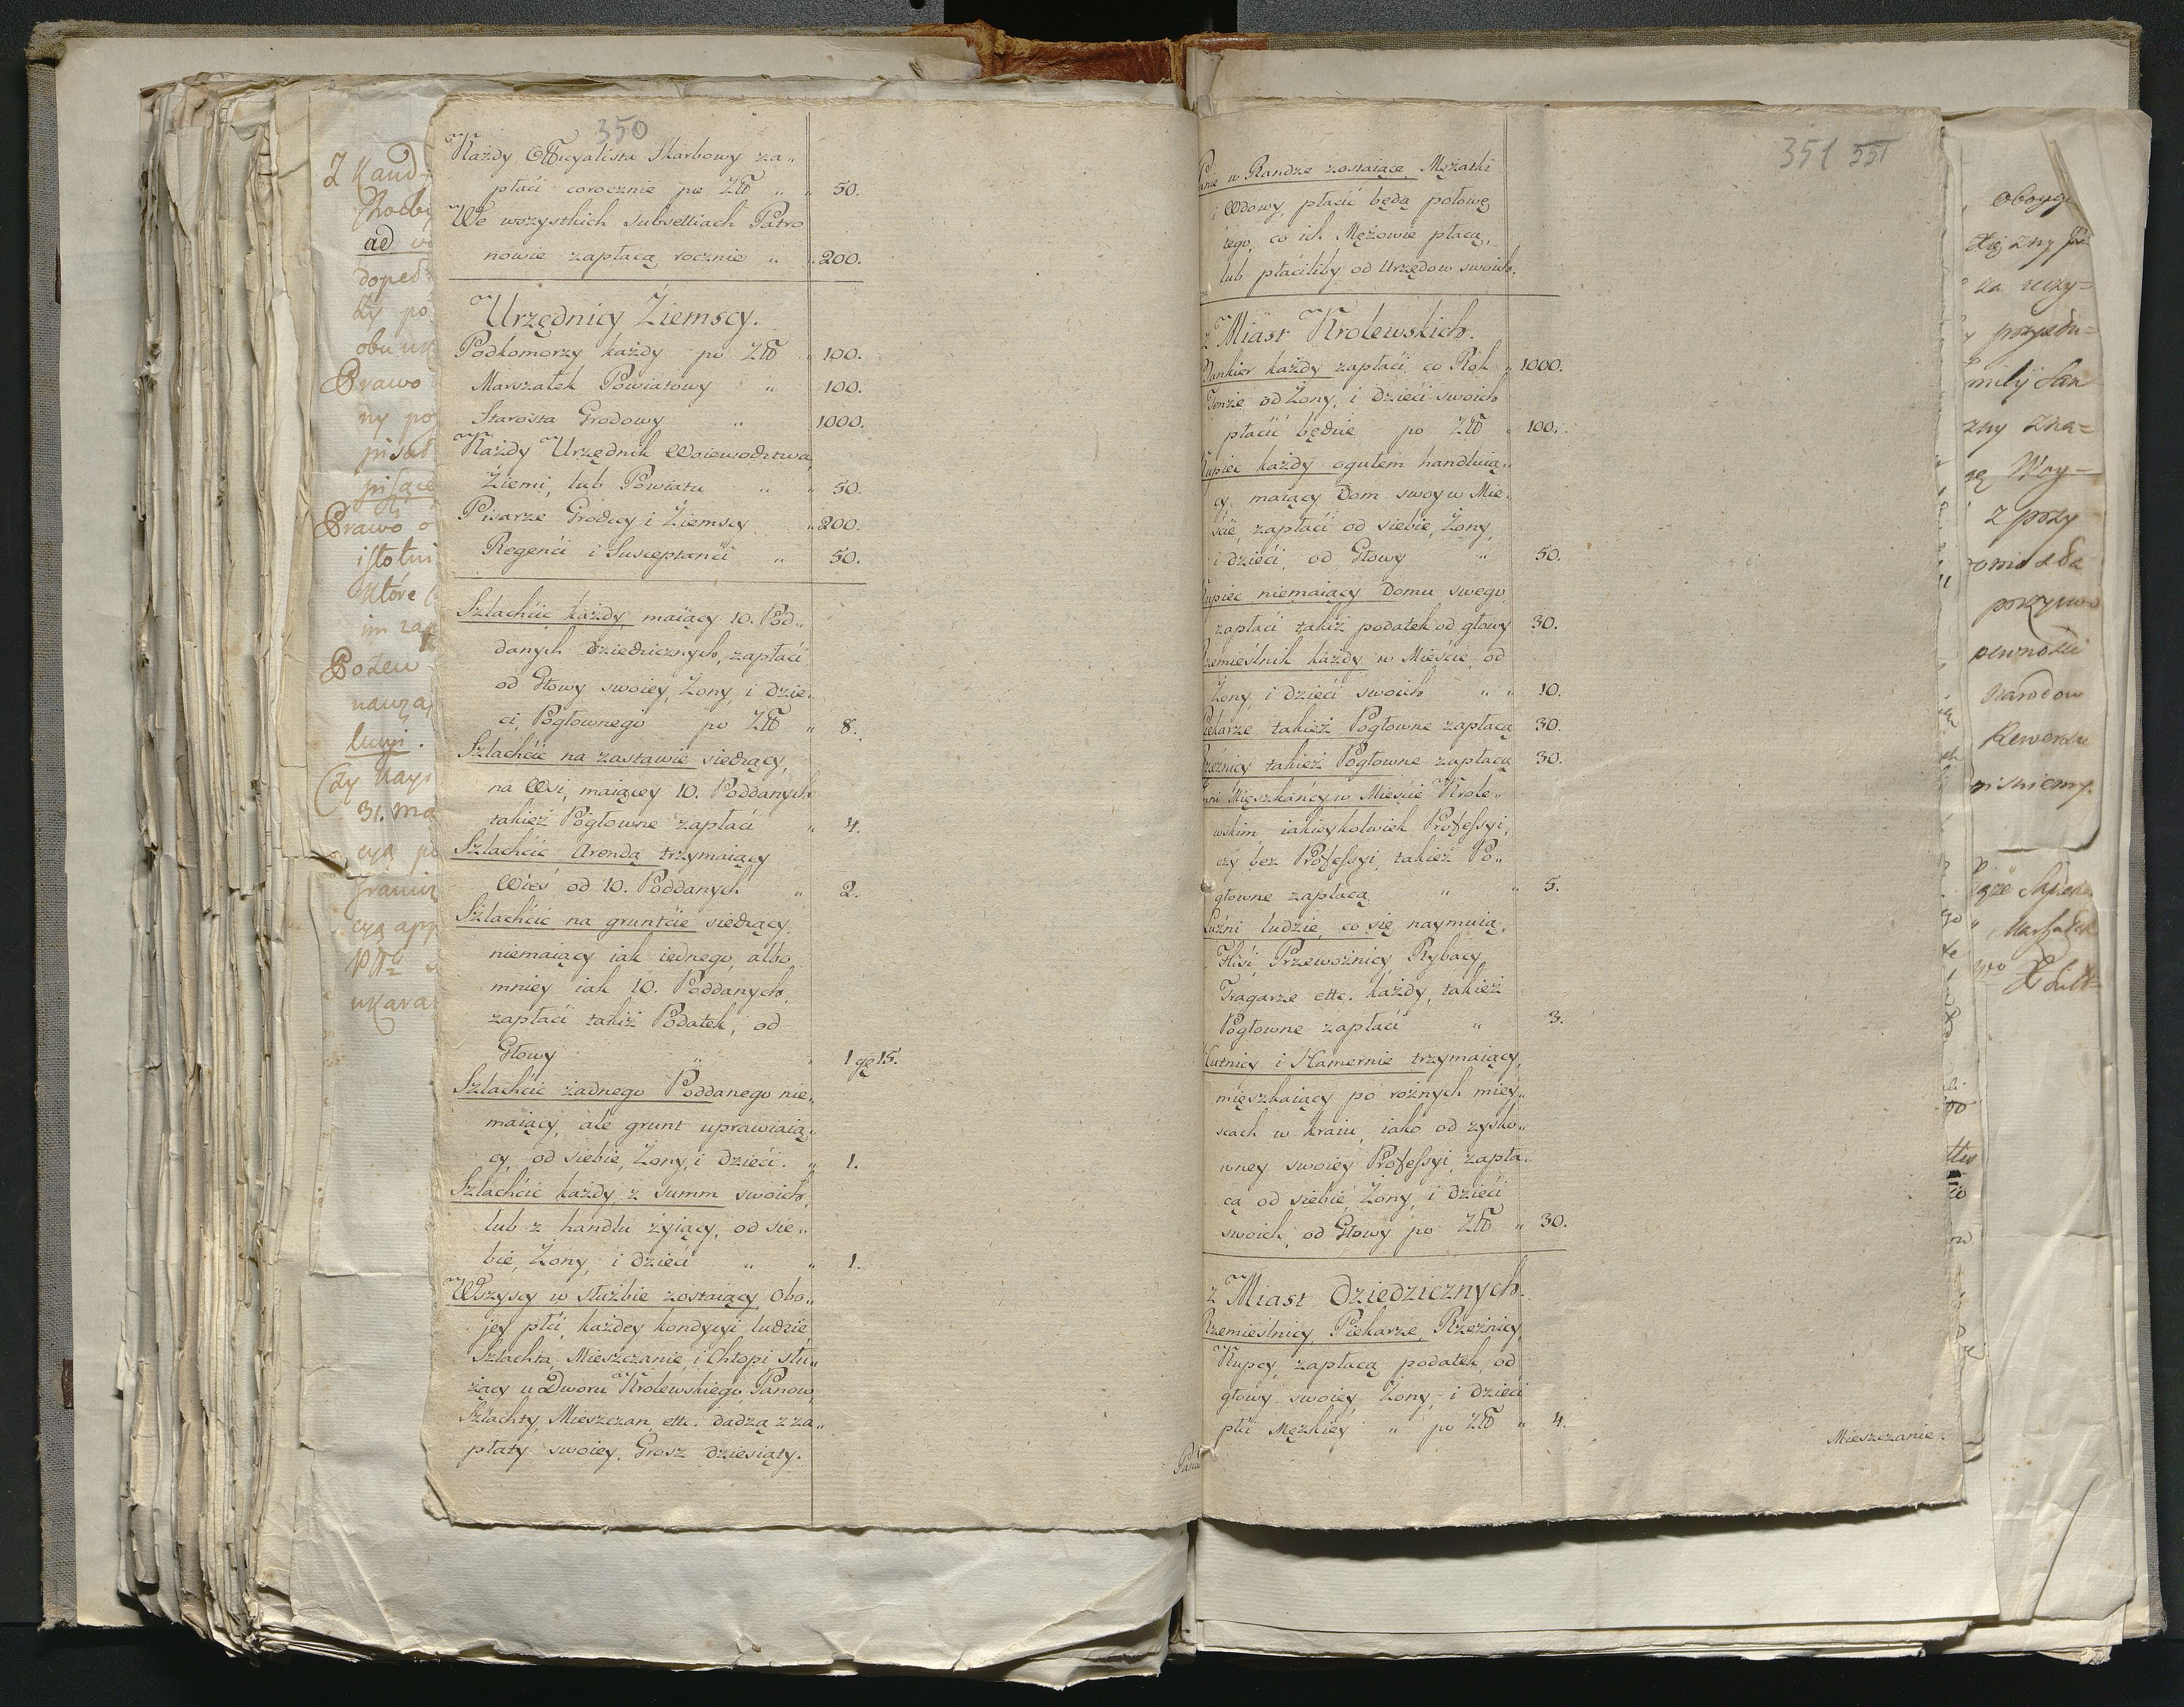 350
Każdy Officyalista Skarbowy za„
płaci corocznie po Złł „ „ 50.
We wszystkich Subselliach Patro
nowie zapłacą rocznie „ „ 200.
Urzędnicy Ziemscy.
Podkomorzy każdy po Złł „ 100.
Marszałek Powiatowy „ 100.
Starosta Grodowy „ 1000.
Każdy Urzędnik Woiewodztwa,
Ziemi, lub Powiatu „ „ 50.
Pisarze Grodzcy i Ziemscy „ 200.
Regenci i Susceptanci „ 50.
Szlachcic każdy maiący 10. Pod„
danych dziedzicznych, zapłaci
od Głowy swoiey, Żony, i dzie„
ci, Pogłownego po Złł „ 8.
Szlachcic na zastawie siedzący,
na Wsi, maiącey 10. Poddanych
takież Pogłowne zapłaci „ 4.
Szlachcic Arendą trzymaiący
Wieś od 10. Poddanych „ 2.
Szlachcic na gruntcie siedzący,
niemaiący iak iednego, albo
mniey iak 10. Poddanych,
zapłaci takiż Podatek, od
Głowy „ „ 1 gę 15.
Szlachcic żadnego Poddanego nie„
maiący, ale grunt uprawiaią„
cy, od siebie, Żony, i dzieci. „ 1.
Szlachcic każdy, z summ swoich,
lub z handlu żyiący, od sie„
bie, Żony, i dzieci „ „ 1.
Wszyscy w służbie zostaiący Obo„
jey płci, każdey kondycyi ludzie,
Szlachta, Mieszczanie, i Chłopi słu„
żący u Dworu Krolewskiego, Panow,
Szlachty, Mieszczan, ettc. dadzą z za„
płaty swoiey, Grosz dziesiąty.
351 551
Panie w Randze zostaiące, Mężatki
i Wdowy, płacić będą połowę
tego, co ich Mężowie płacą,
lub płaciliby od Urzędow swoich.
z Miast Krolewskich.
Bankier każdy zapłaci co Rok „ 1000.
Tenże od Żony, i dzieci swoich
płacić będzie po Złł „ 100.
Kupiec każdy ogułem handluią„
cy, maiący Dom swoy w Mie„
ście, zapłaci od siebie, Żony,
i dzieci, od Głowy „ 50.
Kupiec niemaiący Domu swego,
zapłaci takiż podatek od głowy 30.
Rzemieślnik każdy w Mieście, od
Żony, i dzieci swoich „ „ 10.
Piekarze takież Pogłowne zapłacą 30.
Rzeźnicy takież Pogłowne zapłacą 30.
Inni Mięszkańcy w Mieście Krole„
wskim, iakieykolwiek Professyi,
czy bez Professyi, takież Po„
głowne zapłacą „ „ 5.
Luźni ludzie, co się naymuią,
Flisi, Przewoźnicy, Rybacy,
Tragarze, ettc. każdy, takież
Pogłowne zapłaci „ 3.
Hutnicy i Hamernie trzymaiący,
mięszkaiący po rożnych miey„
scach w kraiu, iako od zysko„
wney swoiey Professyi, zapła„
cą od siebie, Żony, i dzieci
swoich, od Głowy po Złł „ 30.
z Miast Dziedzicznych.
Rzemieślnicy, Piekarze, Rzeźnicy,
Kupcy, zapłacą podatek, od
głowy swoiey, Żony, i dzieci
płci Męzkiey „ po Złł „ 4.
Mieszczanie.